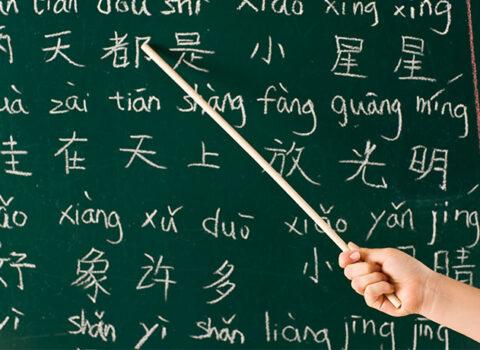 tiān dōu shì xiǎo xīng xing
天 都 是 小 星 星
uà zài tiān shàng fàng guāng míng
圭 在 天 上 放 光 明
ǎo xiàng xǔ duō xiǎo yǎn jīng
好 象 许 多 小 睛
shǎn yì shǎn liàng jīng jīng